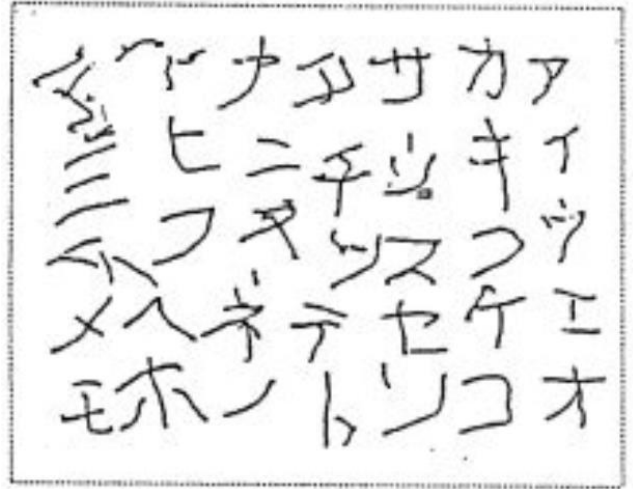 アイツエオ
カキフケコ
サシスセソ
タチツテト
ナニヌネノ
ヒフヘホ
ミメモ